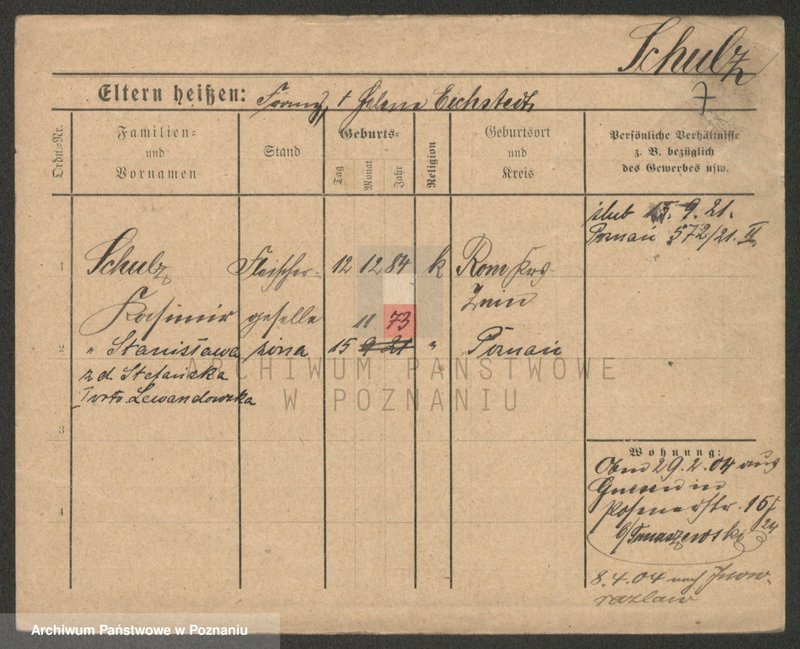 Schulz
7
Eltern heißen: Franz, + Helena Eichstedt
Ordn.-Nr.
Familien- und Vornamen
Stand
Geburts-
Tag Monat Jahr
Religion
Geburtsort und Kreis
Persönliche Verhältnisse z. B. bezüglich des Gewerbes usw.
ślub 15. 9. 21.
Poznań 572/21. II
1 Schulz Fleischer- 12 12 84 k Rom Krs.
Znin
Kasimir geselle 11 73
2 " Stanisława żona 15 9 21 " Poznań
z d. Stefańska
Ivoto. Lewandowska
3
4
Wohnung:
Obm 29.2.04 aus
Gnesen in
Posenerstr. 15/
24
b/Tomaszewski
8.4.04 nach Inow-
razlaw
ARCHIWUM PAŃSTWOWE
W POZNANIU
Archiwum Państwowe w Poznaniu